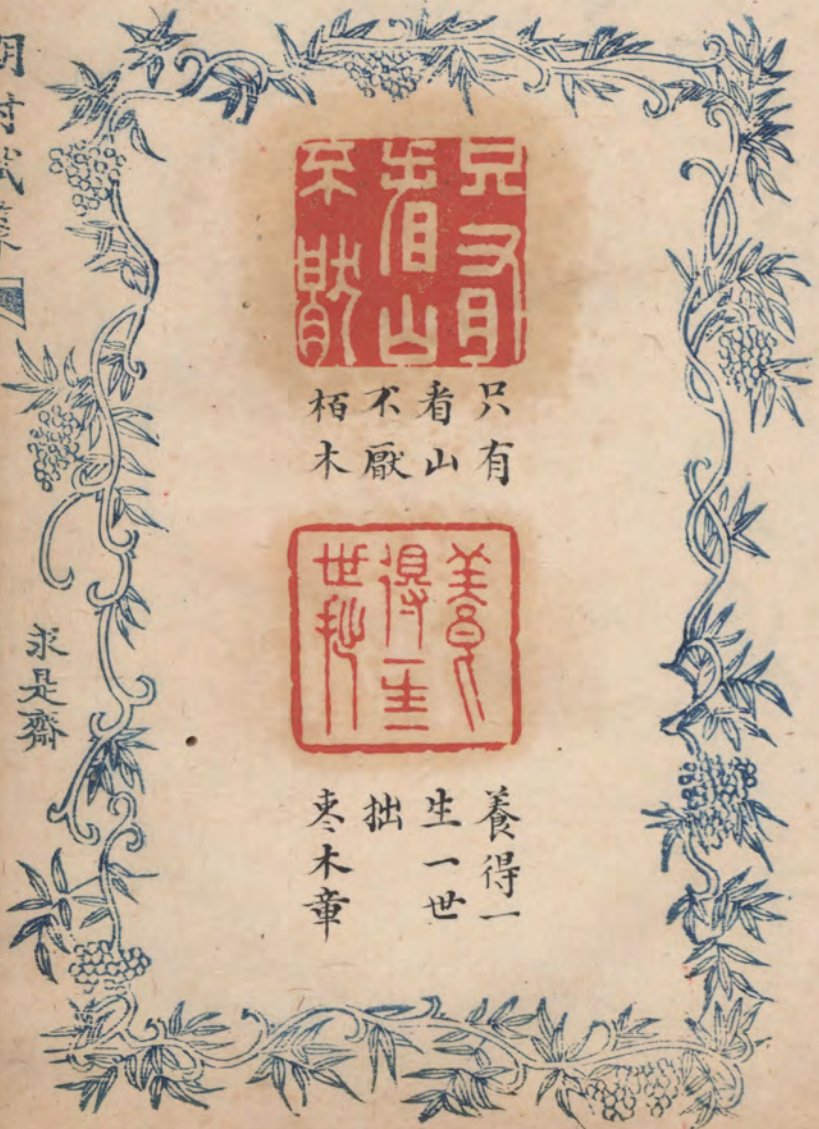 只有
看山
不猒
只有
看山
不厭
栢木
養
得一生一
世拙
養得一
生一世
拙
枣木章
求是齋